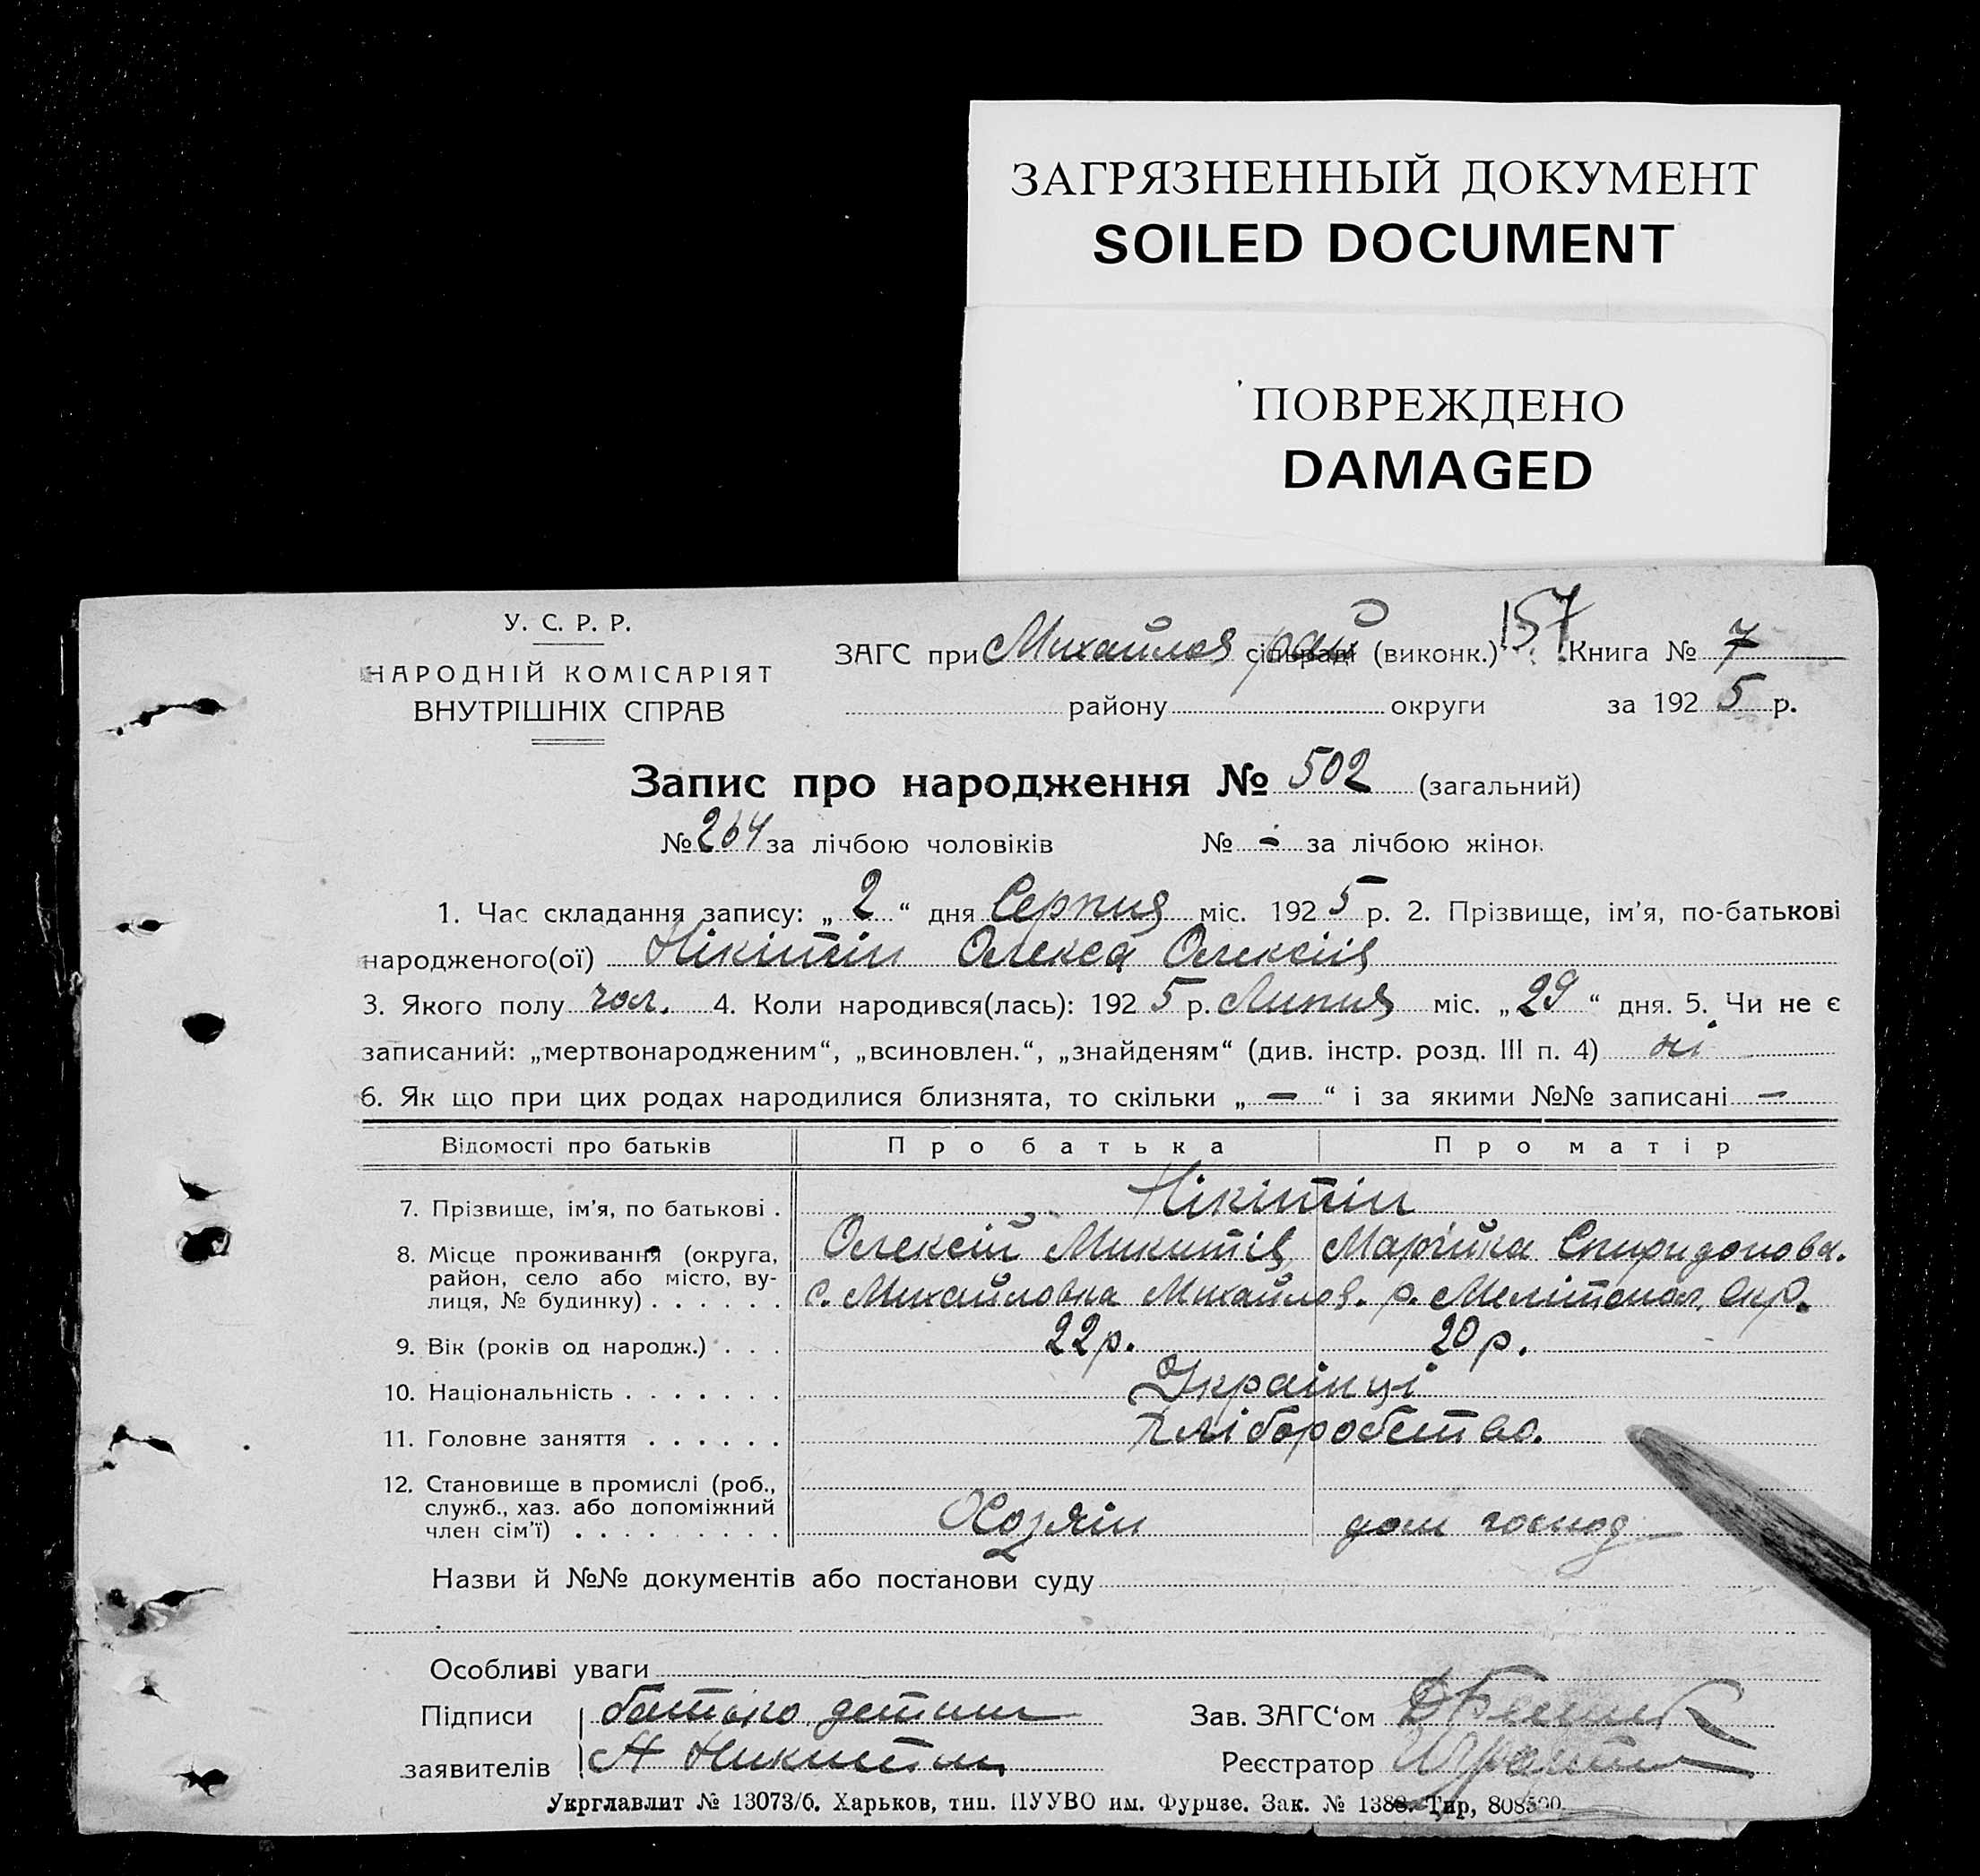 ЗАГРЯЗНЕННЫЙ ДОКУМЕНТ
SOILED DOCUMENT
ПОВРЕЖДЕНО
DAMAGED
157
У. С. Р. Р.
НАРОДНІЙ КОМІСАРІЯТ
ВНУТРІШНІХ СПРАВ
ЗАГС при Михайлов рай сільраді (виконк.) Книга № 7
району округи за 1925 р.
Запис про народження № 502 (загальний)
№ 264 за лічбою чоловіків № - за лічбою жінок
1. Час складання запису: „2“ дня Серпня міс. 1925 р. 2. Прізвище, ім'я, по-батькові
народженого(ої) Нікітін Олекса Олексіїв
3. Якого полу чол. 4. Коли народився(лась): 1925 р. Липня міс. „29“ дня. 5. Чи не є
записаний: „мертвонародженим“, „всиновлен.“, „знайденям“ (див. інстр. розд. III п. 4) ні
6. Як що при цих родах народилися близнята, то скільки „—“ і за якими №№ записані —
Відомості про батьків Про батька Про матір
7. Прізвище, ім'я, по батькові . Нікітін
Олексій Микитів Марійка Спиридонова.
8. Місце проживання (округа,
район, село або місто, ву-
лиця, № будинку) . . . . . . с. Михайловка Михайлов. р. Мелітопол. Окр.
9. Вік (років од народж.) . . . 22 р. 20 р.
10. Національність . . . . . . . Українці
11. Головне заняття . . . . . . Хліборобство.
12. Становище в промислі (роб.,
служб., хаз. або допоміжний
член сім'ї) . . . . . . . . . Хозяїн дом господ
Назви й №№ документів або постанови суду
Особливі уваги
Підписи батько детини Зав. ЗАГС'ом
заявителів А Никитин Реєстратор
Укрглавлит № 13073/б. Харьков, тип. ПУУВО им. Фрунзе. Зак. № 1388. Тир, 808500.